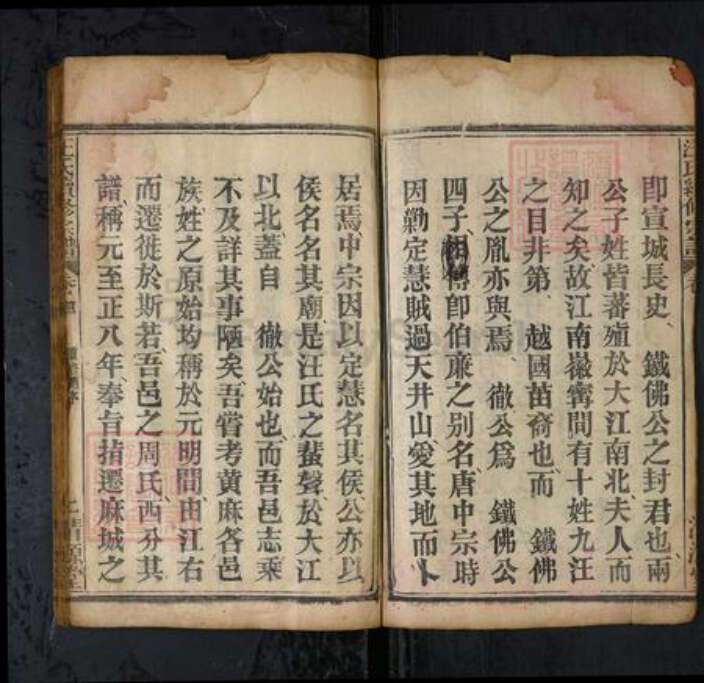 即宣城長史 鐵佛公之封君也兩
公子姓皆蕃殖於大江南北夫人而
知之矣故江南嶽寗間有十姓九汪
之目非第 越國苗裔也而 鐵佛
公之胤亦與焉 徹公爲 鐵佛公
四子相傳卽伯廉之别名唐中宗時
因勦定慧賊過天井山愛其地而卜
居焉中宗因以定慧名其侯公亦以
侯名名其廟是汪氏之蜚聲於大江
以北蓋自 徹公始也而吾邑志乘
不及詳其事陋矣吾嘗考黄麻各邑
族姓之原始均稱於元明間由江右
而遷徙於斯若吾邑之周氏西分其
譜稱元至正八年奉旨指遷麻城之
汪氏續修宗譜